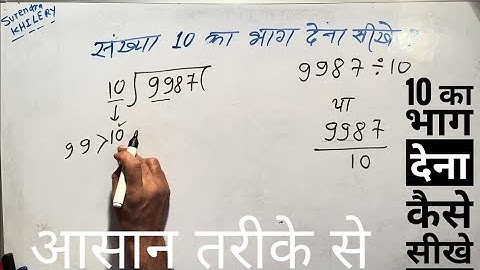 Surendra
KHILERY
संख्या 10 का भाग देना सीखे ?
10 ) 9987 (
↓
99 > 10
9987 ÷ 10
या
9987
10
10 का
भाग
देना
कैसे
सीखे
आसान तरीके से